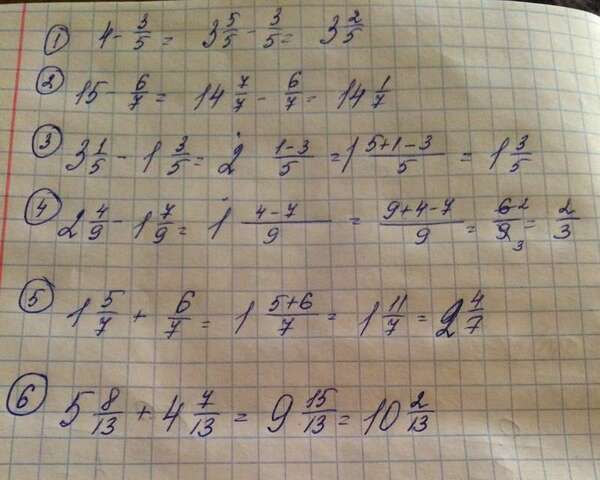 ① 4 - 3/5 = 3 5/5 - 3/5 = 3 2/5
② 15 - 6/7 = 14 7/7 - 6/7 = 14 1/7
③ 3 1/5 - 1 3/5 = 2 (1-3)/5 = 1 (5+1-3)/5 = 1 3/5
④ 2 4/9 - 1 7/9 = 1 (4-7)/9 = (9+4-7)/9 = 6 2/9 3 = 2/3
⑤ 1 5/7 + 6/7 = 1 (5+6)/7 = 1 11/7 = 2 4/7
⑥ 5 8/13 + 4 7/13 = 9 15/13 = 10 2/13